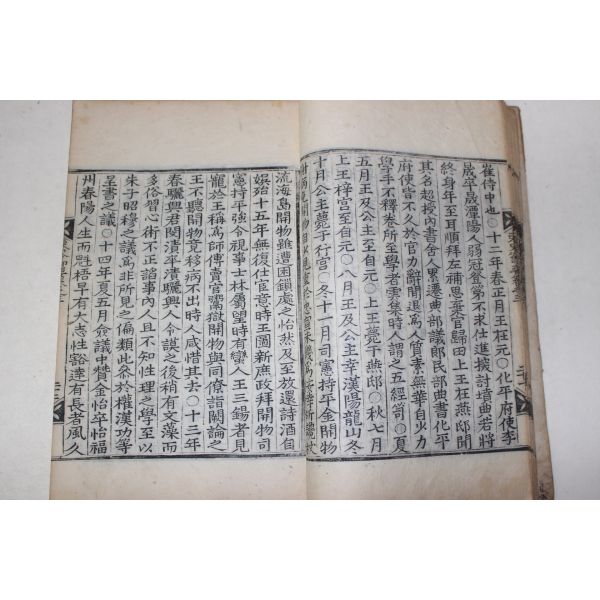 崔侍中也○十二年春正月王在元○化平府使李
晟卒晟潭陽人弱冠登第不求仕進搜討墳典若將
終身年至耳順拜左補思棄官歸田上王在燕邸聞
其名超授內書舍人累遷典部議郎民部典書化平
府使皆不久於官力辭閒退爲人質素無華自火力
學手不釋卷所至學者雲集時人謂之五經笥○夏
五月王及公主至自元○上王薨于燕邸○秋七月
上王梓宮至自元○八月王及公主幸漢陽龍山冬
十月公主薨于行宮○冬十一月司憲持平金開物
流海島開物雖遭困鎖處之怡然及至放還詩酒自
娛殆十五年無復仕官意時王圖新庶政拜開物司
憲持平強令視事士林屬望時有孌人王三錫者見
寵於王稱爲師傅賣官鬻獄開物與同僚詣闕論之
王不聽開物竟移病不出時人咸惜其去○十三年
春驪興君閔漬卒漬驪興人令謨之後稍有文藻而
多俗習心術不正諂事內人且不知性理之學至以
朱子昭穆之議爲非所見之偏類此叅於權漢功等
呈書之議○十四年夏五月僉議中贊金怡卒怡福
州春陽人生而魁梧早有大志性豁達有長者風久